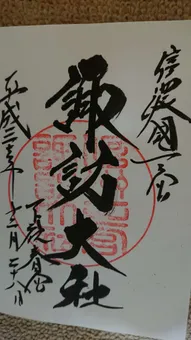 信濃國一之宮
諏訪大社
下社春宮
平成二十
十二月二十八日